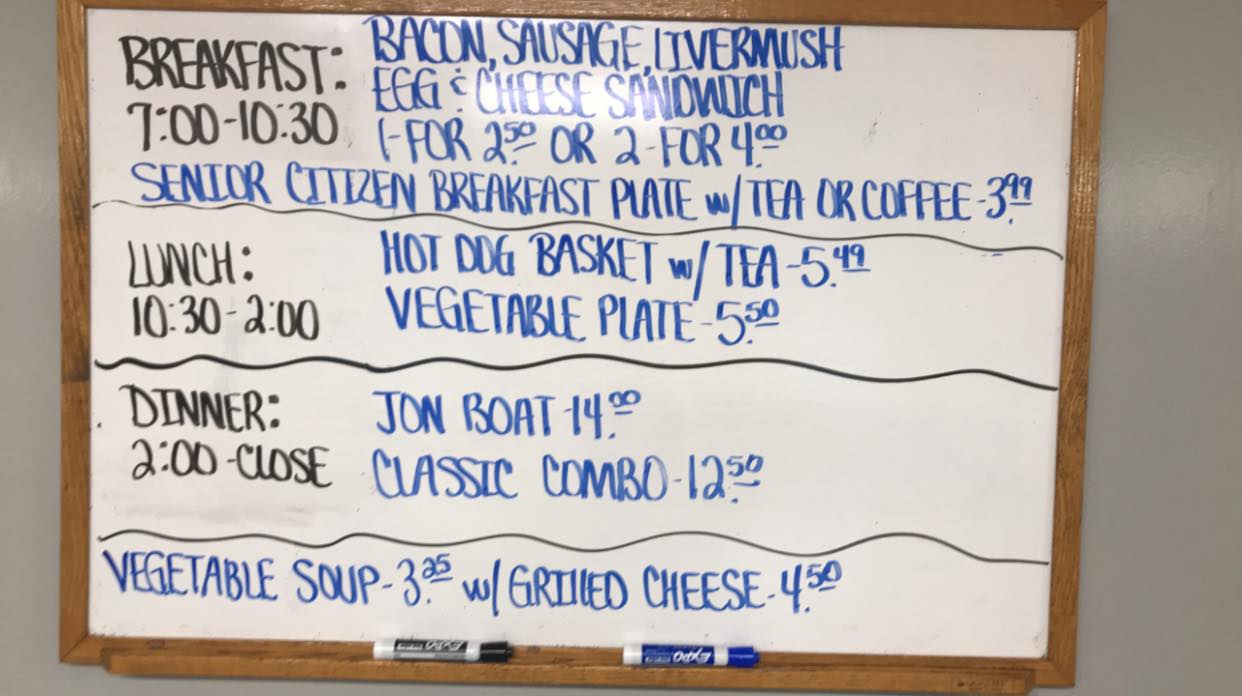 BREAKFAST: BACON, SAUSAGE, LIVERMUSH
EGG & CHEESE SANDWICH
7:00-10:30 1-FOR 2.50 OR 2-FOR 4.00
SENIOR CITIZEN BREAKFAST PLATE w/ TEA OR COFFEE-3.99
LUNCH: HOT DOG BASKET w/ TEA-5.49
10:30-2:00 VEGETABLE PLATE-5.50
DINNER: JON BOAT-14.00
2:00-CLOSE CLASSIC COMBO-12.50
VEGETABLE SOUP-3.25 w/ GRILLED CHEESE-4.50
EXPO EXPO